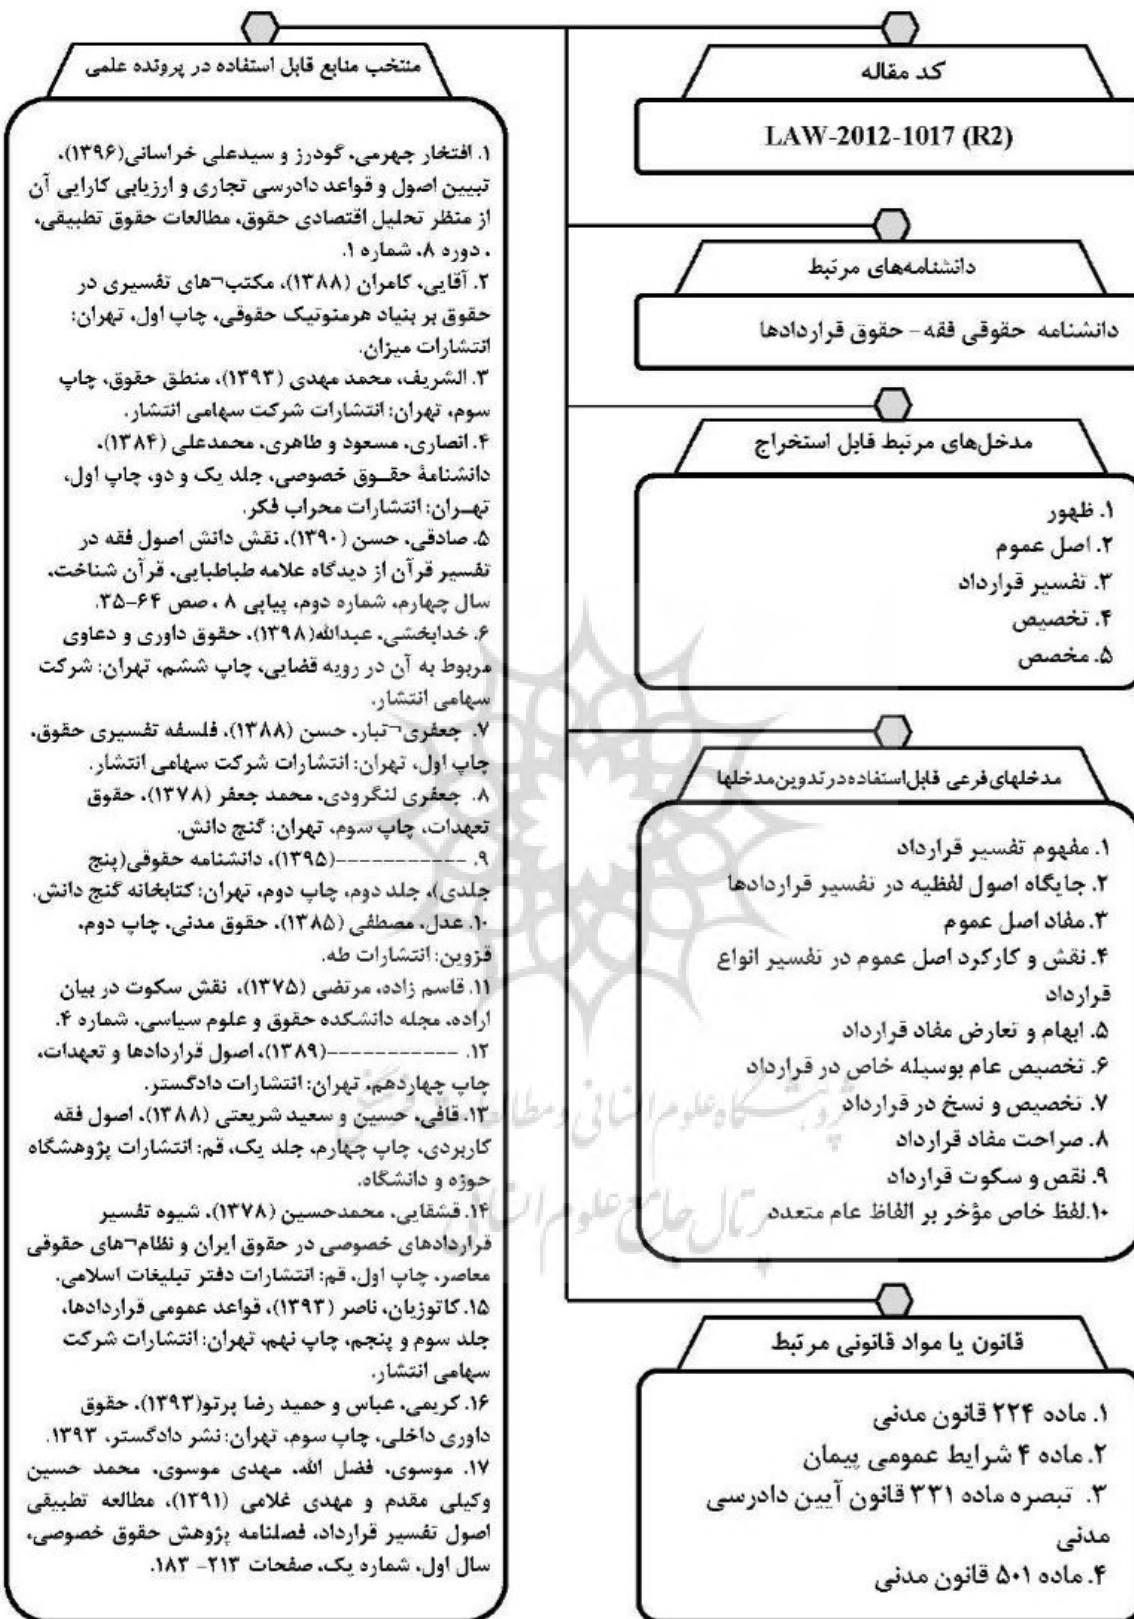 کد مقاله
LAW-2012-1017 (R2)
دانشنامه‌های مرتبط
دانشنامه حقوقی فقه - حقوق قراردادها
مدخل‌های مرتبط قابل استخراج
۱. ظهور
۲. اصل عموم
۳. تفسیر قرارداد
۴. تخصیص
۵. مخصص
مدخلهای فرعی قابل‌استفاده‌در تدوین‌مدخلها
۱. مفهوم تفسیر قرارداد
۲. جایگاه اصول لفظیه در تفسیر قراردادها
۳. مفاد اصل عموم
۴. نقش و کارکرد اصل عموم در تفسیر انواع
قرارداد
۵. ابهام و تعارض مفاد قرارداد
۶. تخصیص عام بوسیله خاص در قرارداد
۷. تخصیص و نسخ در قرارداد
۸. صراحت مفاد قرارداد
۹. نقص و سکوت قرارداد
۱۰.لفظ خاص مؤخر بر الفاظ عام متعدد
قانون یا مواد قانونی مرتبط
۱. ماده ۲۲۴ قانون مدنی
۲. ماده ۴ شرایط عمومی پیمان
۳. تبصره ماده ۳۳۱ قانون آیین دادرسی
مدنی
۴. ماده ۵۰۱ قانون مدنی
منتخب منابع قابل استفاده در پرونده علمی
۱. افتخار جهرمی، گودرز و سیدعلی خراسانی(۱۳۹۶)،
تبیین اصول و قواعد دادرسی تجاری و ارزیابی کارایی آن
از منظر تحلیل اقتصادی حقوق، مطالعات حقوق تطبیقی،
، دوره ۸، شماره ۱.
۲. آقایی، کامران (۱۳۸۸)، مکتب¬های تفسیری در
حقوق بر بنیاد هرمنوتیک حقوقی، چاپ اول، تهران:
انتشارات میزان.
۳. الشریف، محمد مهدی (۱۳۹۳)، منطق حقوق، چاپ
سوم، تهران: انتشارات شرکت سهامی انتشار.
۴. انصاری، مسعود و طاهری، محمدعلی (۱۳۸۴)،
دانشنامهٔ حقــوق خصوصی، جلد یک و دو، چاپ اول،
تهــران: انتشارات محراب فکر.
۵. صادقی، حسن (۱۳۹۰)، نقش دانش اصول فقه در
تفسیر قرآن از دیدگاه علامه طباطبایی، قرآن شناخت،
سال چهارم، شماره دوم، پیاپی ۸ ، صص ۶۴-۳۵.
۶. خدابخشی، عبدالله(۱۳۹۸)، حقوق داوری و دعاوی
مربوط به آن در رویه قضایی، چاپ ششم، تهران: شرکت
سهامی انتشار.
۷. جعفری¬تبار، حسن (۱۳۸۸)، فلسفه تفسیری حقوق،
چاپ اول، تهران: انتشارات شرکت سهامی انتشار.
۸. جعفری لنگرودی، محمد جعفر (۱۳۷۸)، حقوق
تعهدات، چاپ سوم، تهران: گنج دانش.
۹. -----------(۱۳۹۵)، دانشنامه حقوقی(پنج
جلدی)، جلد دوم، چاپ دوم، تهران: کتابخانه گنج دانش.
۱۰. عدل، مصطفی (۱۳۸۵)، حقوق مدنی، چاپ دوم،
قزوین: انتشارات طه.
۱۱. قاسم زاده، مرتضی (۱۳۷۵)، نقش سکوت در بیان
اراده، مجله دانشکده حقوق و علوم سیاسی، شماره ۴.
۱۲. -----------(۱۳۸۹)، اصول قراردادها و تعهدات،
چاپ چهاردهم، تهران: انتشارات دادگستر.
۱۳. قافی، حسین و سعید شریعتی (۱۳۸۸)، اصول فقه
کاربردی، چاپ چهارم، جلد یک، قم: انتشارات پژوهشگاه
حوزه و دانشگاه.
۱۴. قشقایی، محمدحسین (۱۳۷۸)، شیوه تفسیر
قراردادهای خصوصی در حقوق ایران و نظام¬های حقوقی
معاصر، چاپ اول، قم: انتشارات دفتر تبلیغات اسلامی.
۱۵. کاتوزیان، ناصر (۱۳۹۳)، قواعد عمومی قراردادها،
جلد سوم و پنجم، چاپ نهم، تهران: انتشارات شرکت
سهامی انتشار.
۱۶. کریمی، عباس و حمید رضا پرتو(۱۳۹۳)، حقوق
داوری داخلی، چاپ سوم، تهران: نشر دادگستر، ۱۳۹۳.
۱۷. موسوی، فضل الله، مهدی موسوی، محمد حسین
وکیلی مقدم و مهدی غلامی (۱۳۹۱)، مطالعه تطبیقی
اصول تفسیر قرارداد، فصلنامه پژوهش حقوق خصوصی،
سال اول، شماره یک، صفحات ۲۱۳- ۱۸۳.
پژوهشگاه علوم انسانی و مطالعات فرهنگی
پرتال جامع علوم انسانی